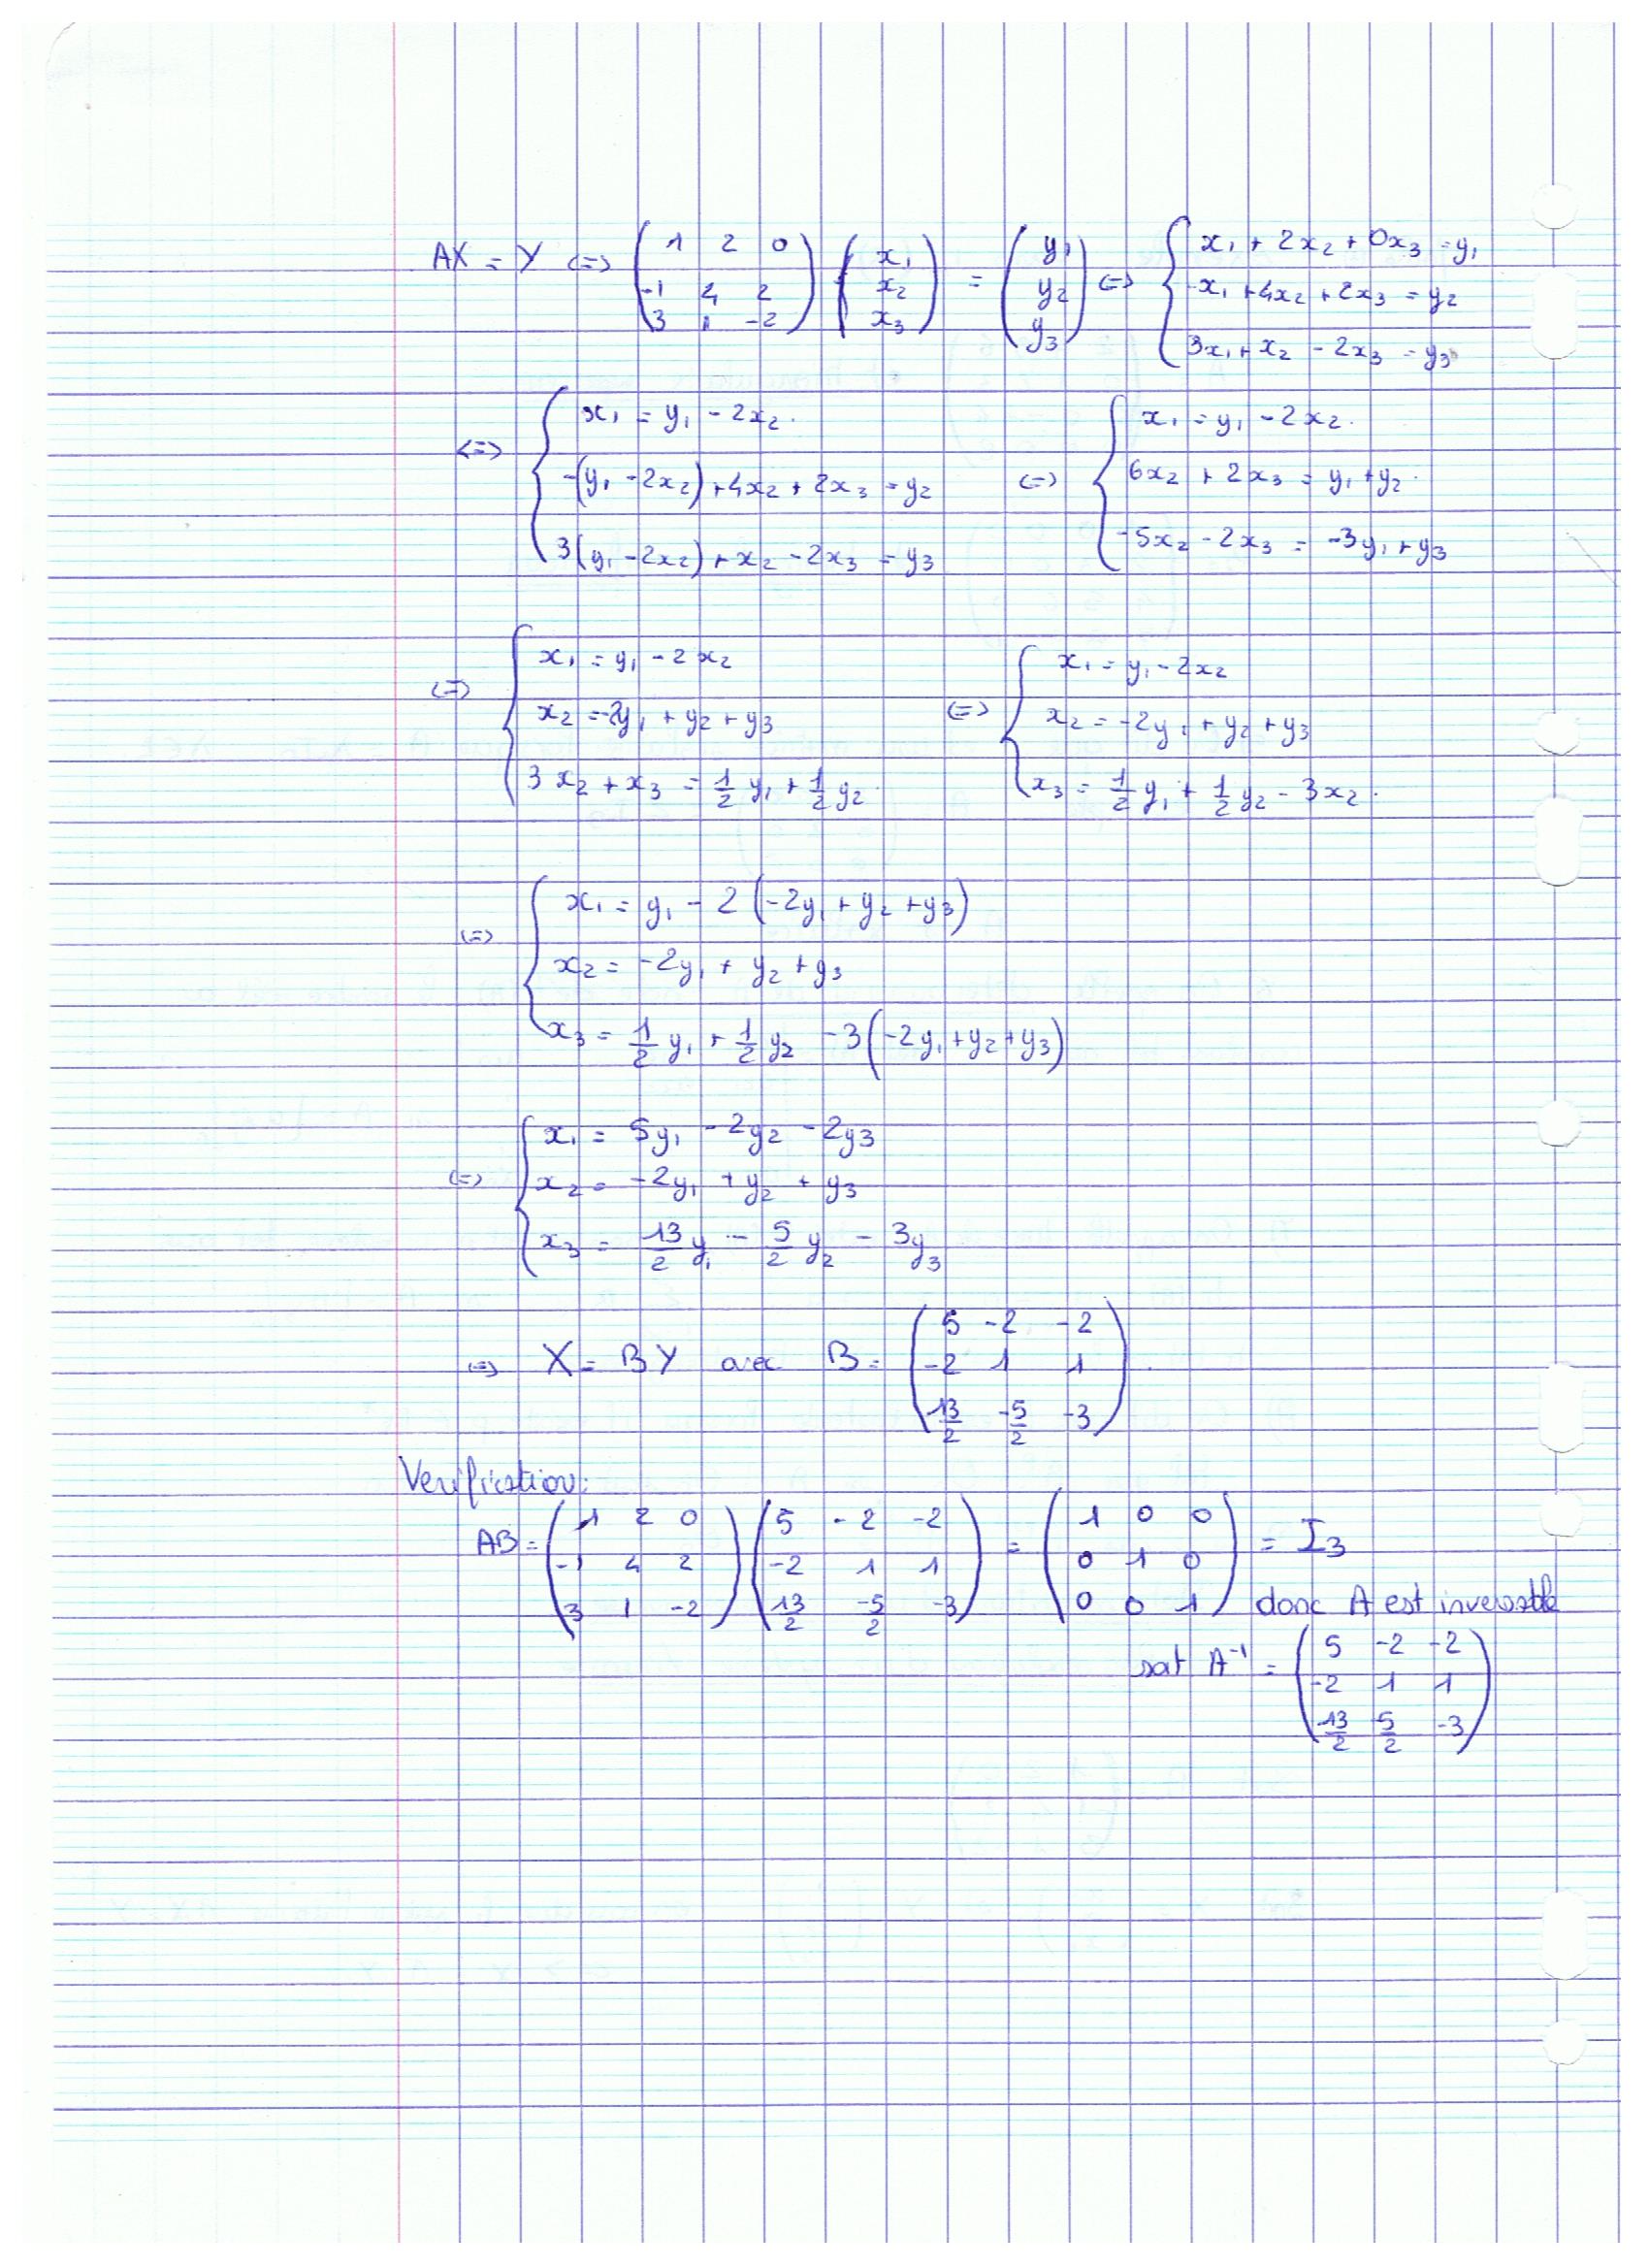 AX = Y <=> ( 1 2 0 ; -1 4 2 ; 3 1 -2 ) ( x₁ ; x₂ ; x₃ ) = ( y₁ ; y₂ ; y₃ ) <=> { x₁ + 2x₂ + 0x₃ = y₁ ; -x₁ + 4x₂ + 2x₃ = y₂ ; 3x₁ + x₂ - 2x₃ = y₃
<=> { x₁ = y₁ - 2x₂. ; -(y₁ - 2x₂) + 4x₂ + 2x₃ = y₂ ; 3(y₁ - 2x₂) + x₂ - 2x₃ = y₃ <=> { x₁ = y₁ - 2x₂. ; 6x₂ + 2x₃ = y₁ + y₂. ; -5x₂ - 2x₃ = -3y₁ + y₃
<=> { x₁ = y₁ - 2x₂ ; x₂ = -2y₁ + y₂ + y₃ ; 3x₂ + x₃ = 1/2 y₁ + 1/2 y₂. <=> { x₁ = y₁ - 2x₂ ; x₂ = -2y₁ + y₂ + y₃ ; x₃ = 1/2 y₁ + 1/2 y₂ - 3x₂.
<=> { x₁ = y₁ - 2(-2y₁ + y₂ + y₃) ; x₂ = -2y₁ + y₂ + y₃ ; x₃ = 1/2 y₁ + 1/2 y₂ - 3(-2y₁ + y₂ + y₃)
<=> { x₁ = 5y₁ - 2y₂ - 2y₃ ; x₂ = -2y₁ + y₂ + y₃ ; x₃ = 13/2 y₁ - 5/2 y₂ - 3y₃
<=> X = BY avec B = ( 5 -2 -2 ; -2 1 1 ; 13/2 -5/2 -3 ).
Verification:
AB = ( 1 2 0 ; -1 4 2 ; 3 1 -2 ) ( 5 -2 -2 ; -2 1 1 ; 13/2 -5/2 -3 ) = ( 1 0 0 ; 0 1 0 ; 0 0 1 ) = I₃
donc A est inversible
soit A⁻¹ = ( 5 -2 -2 ; -2 1 1 ; -13/2 5/2 -3 )